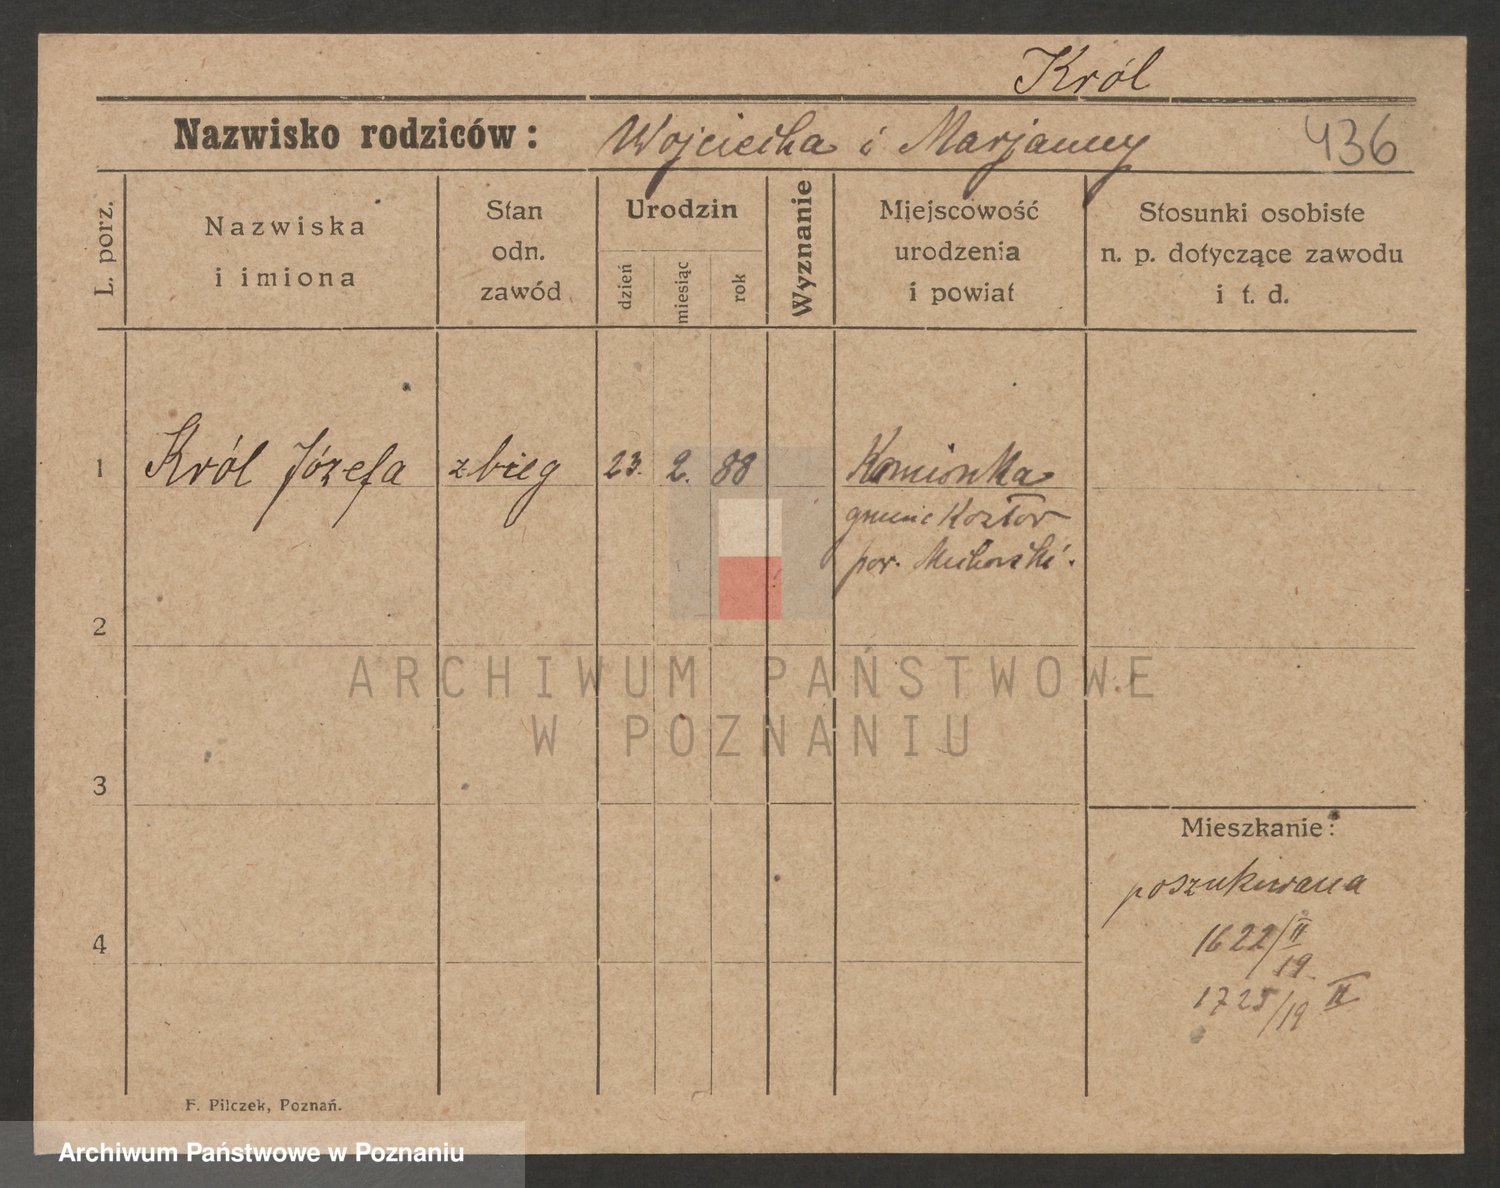 Król
Nazwisko rodziców: Wojciecha i Marjanny 436
L. porz.
Nazwiska
i imiona
Stan
odn.
zawód
Urodzin
dzień
miesiąc
rok
Wyznanie
Miejscowość
urodzenia
i powiat
Stosunki osobiste
n. p. dotyczące zawodu
i t. d.
1 Król Józefa zbieg 23. 2. 88 Kamionka
gminie Kozłów
pow. Miechowski.
2
ARCHIWUM PAŃSTWOWE
W POZNANIU
3
Mieszkanie:
poszukiwana
4
1622/II
19
1725/19 II
F. Pilczek, Poznań.
Archiwum Państwowe w Poznaniu